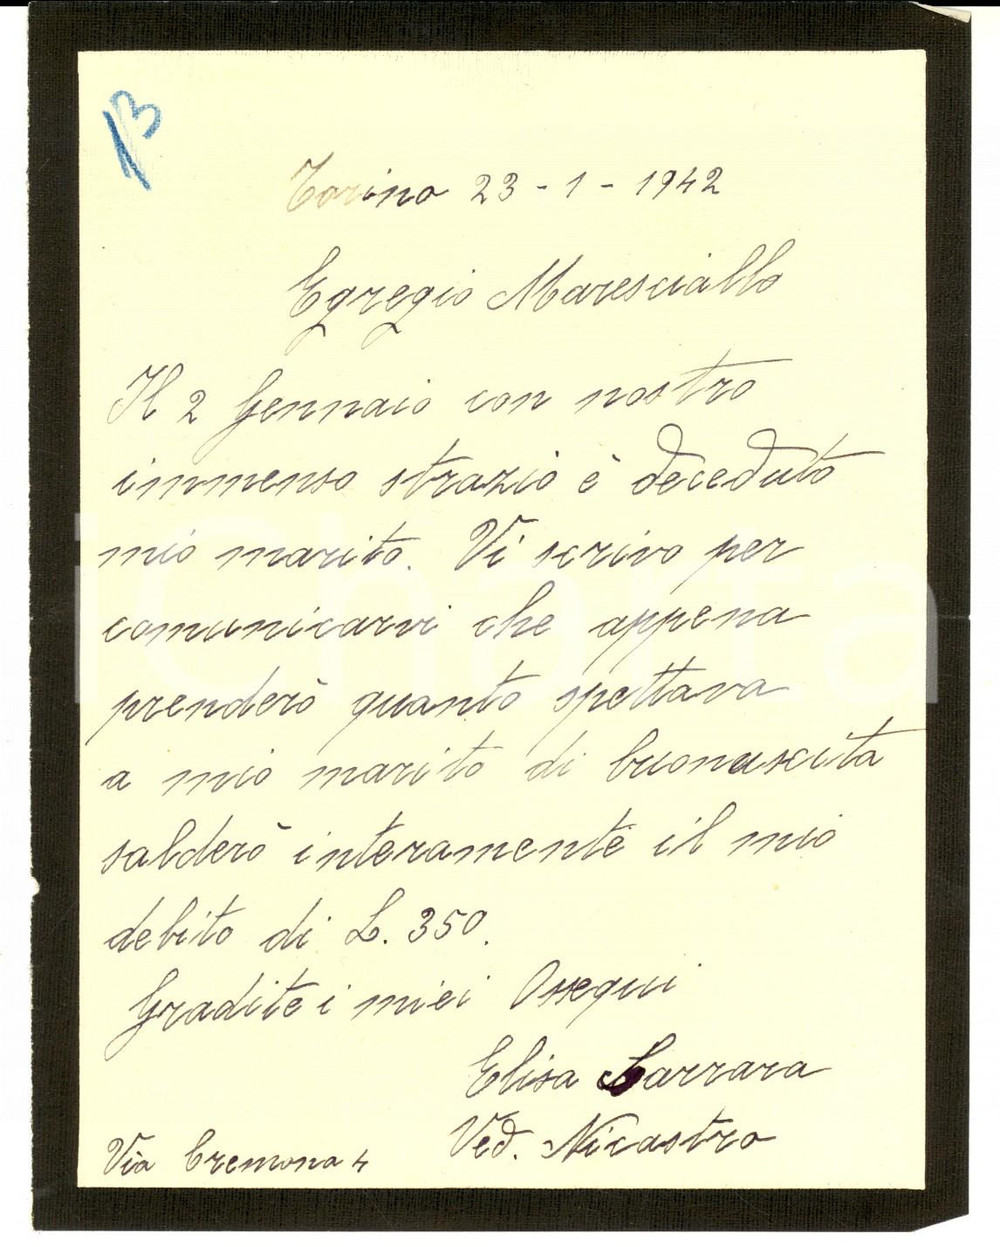 Torino 23 - 1 - 1942
Egregio Maresciallo
Il 2 Gennaio con nostro
immenso strazio è deceduto
mio marito. Vi scrivo per
comunicarvi che appena
prenderò quanto spettava
a mio marito di buonuscita
salderò interamente il mio
debito di L. 350.
Gradite i miei Ossequi
Elisa Carrara
Ved. Nicastro
Via Cremona 4
iCharta